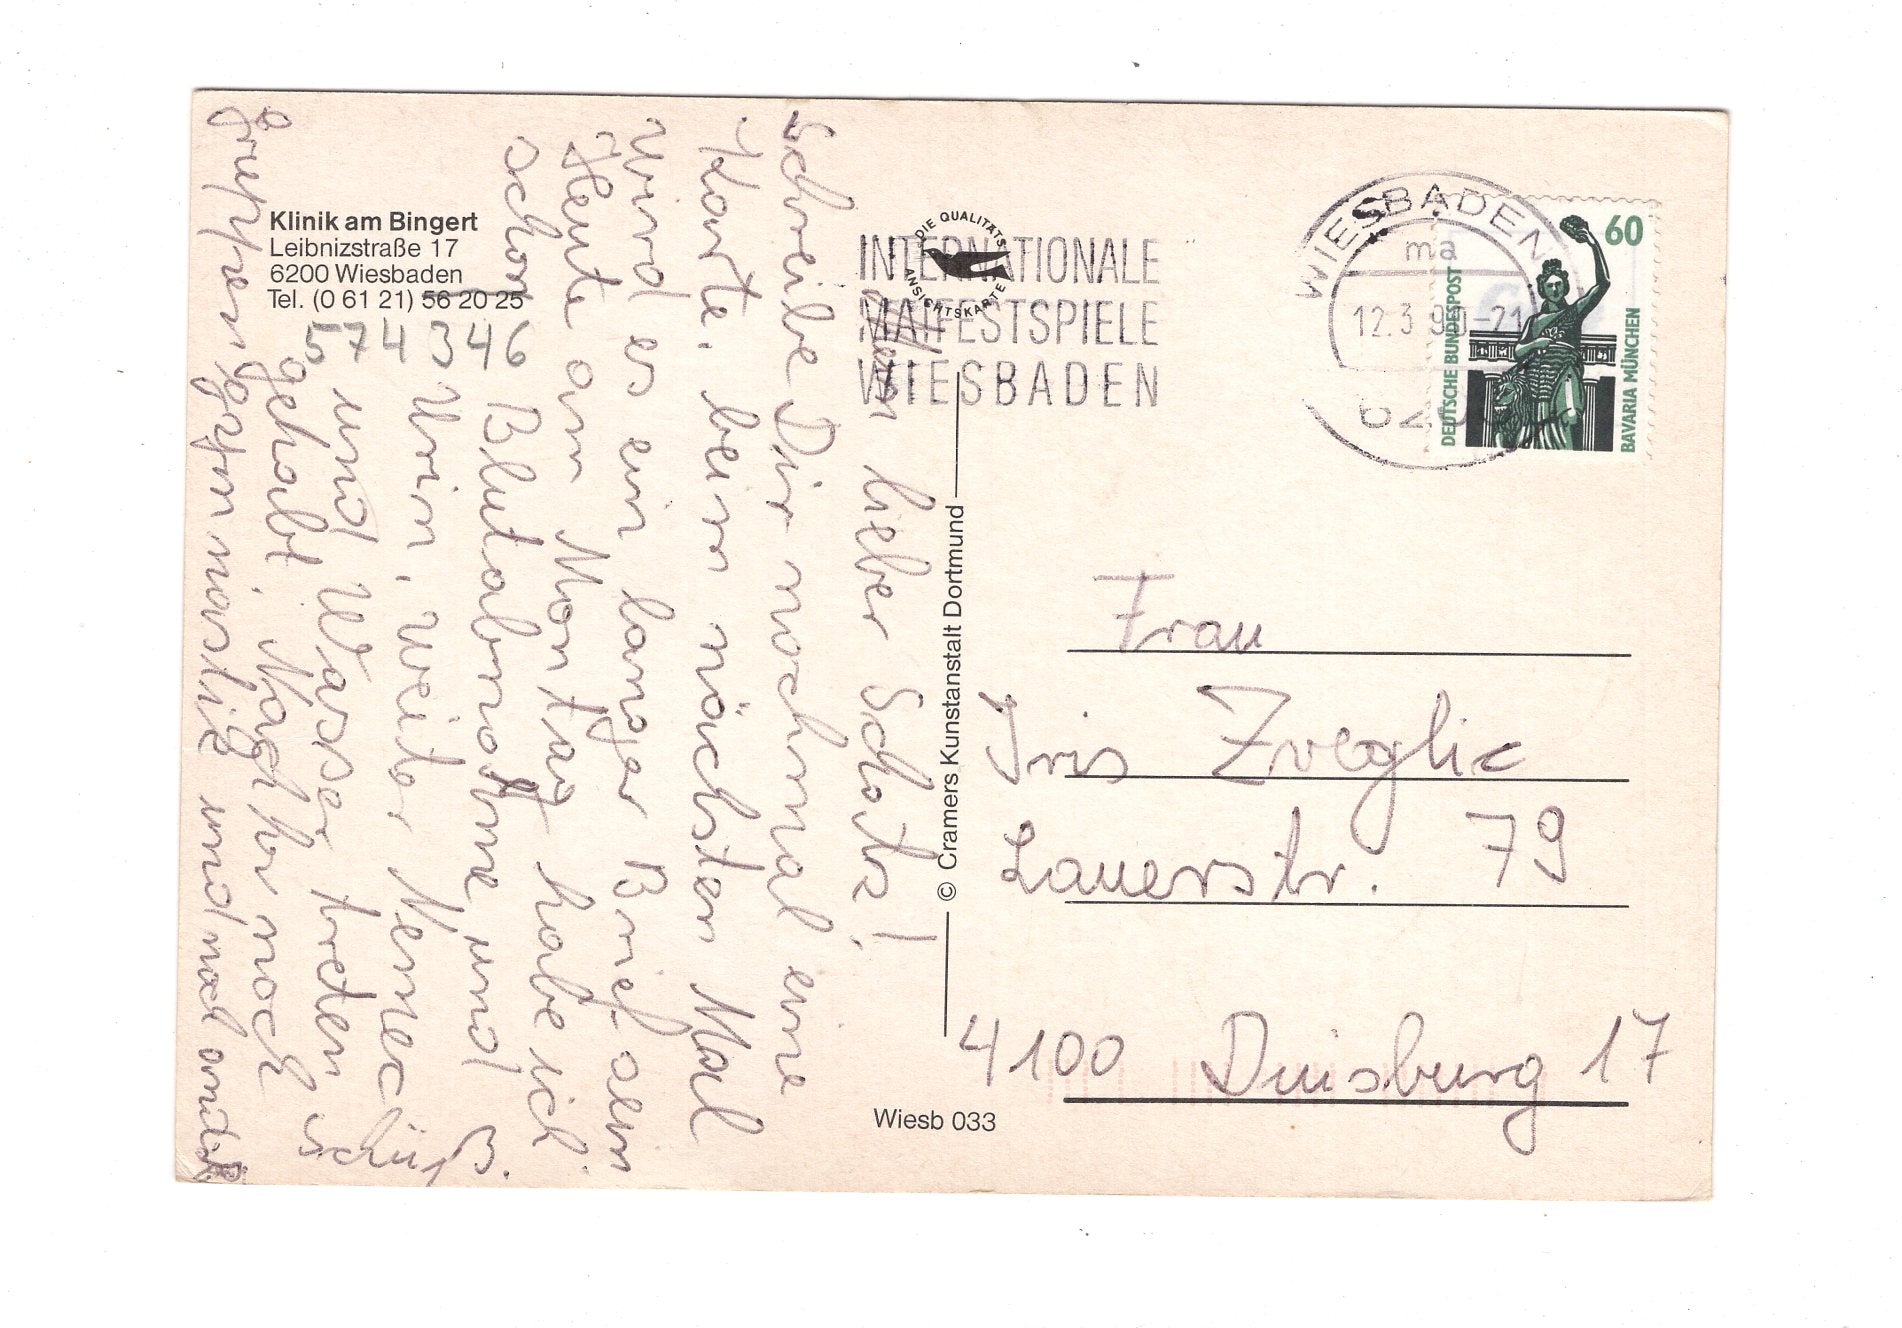 Klinik am Bingert
Leibnizstraße 17
6200 Wiesbaden
Tel. (0 61 21) 56 20 25
574 346
DIE QUALITÄTS
ANSICHTSKARTE
INTERNATIONALE
MAIFESTSPIELE
WIESBADEN
WIESBADEN
ma
12.3.90-21
620
60
DEUTSCHE BUNDESPOST
BAVARIA MÜNCHEN
lieber Schatz!
Schreibe Dir nochmal eine
Karte, beim nächsten Mal
wird es ein langer Brief sein
Heute am Montag habe ich
schon Blutabnahme und
Urin, weiter
und Wasser treten
gehabt. Nachher noch
gruppengymnastik und noch
© Cramers Kunstanstalt Dortmund
Wiesb 033
Frau
Iris Zveglic
Lauerstr. 79
4100 Duisburg 17